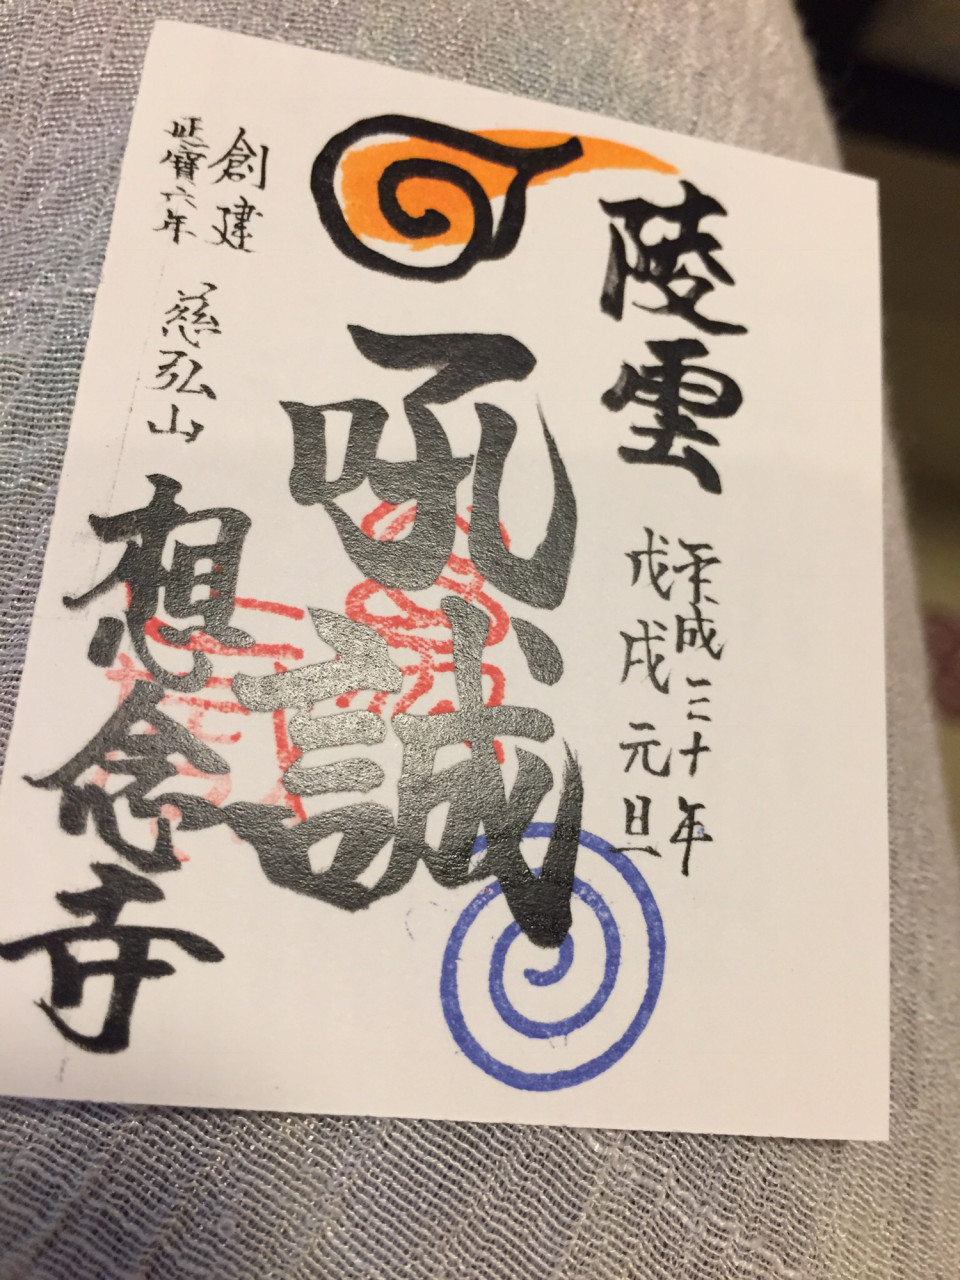 陵雲
平成三十年
戊戌元旦
吼誠
創建
延寶六年
慈弘山
想念寺